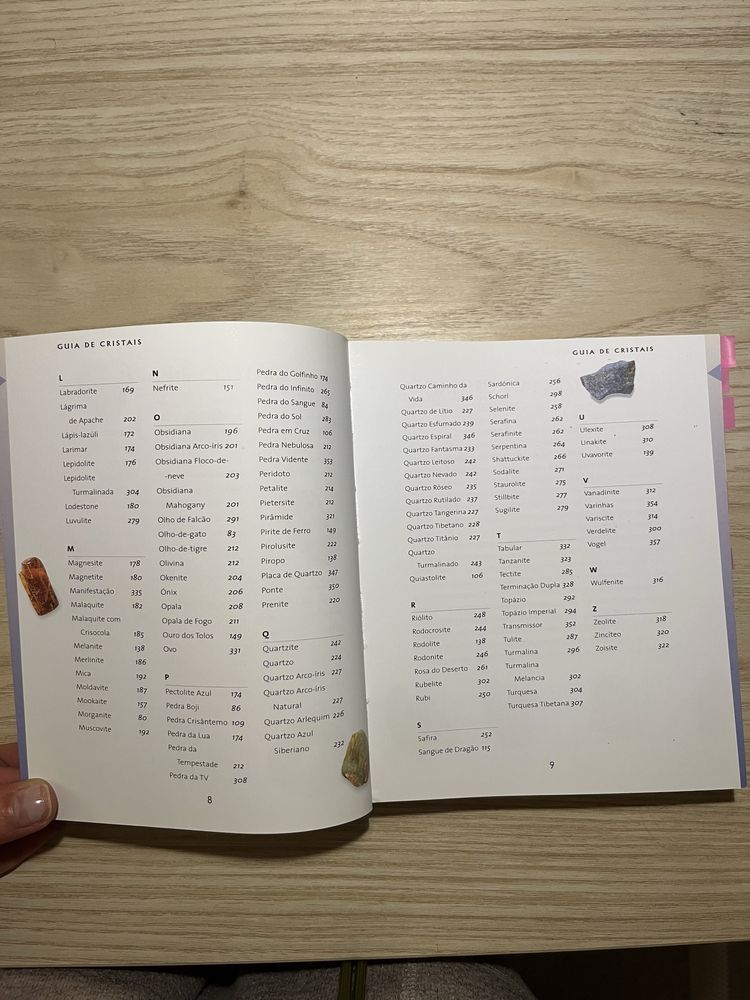 GUIA DE CRISTAIS
L
Labradorite 169
Lágrima
de Apache 202
Lápis-lazúli 172
Larimar 174
Lepidolite 176
Lepidolite
Turmalinada 304
Lodestone 180
Luvulite 279
M
Magnesite 178
Magnetite 180
Manifestação 335
Malaquite 182
Malaquite com
Crisocola 185
Melanite 138
Merlinite 186
Mica 192
Moldavite 187
Mookaite 157
Morganite 80
Muscovite 192
N
Nefrite 151
O
Obsidiana 196
Obsidiana Arco-íris 201
Obsidiana Floco-de-
-neve 203
Obsidiana
Mahogany 201
Olho de Falcão 291
Olho-de-gato 83
Olho-de-tigre 212
Olivina 212
Okenite 204
Ónix 206
Opala 208
Opala de Fogo 211
Ouro dos Tolos 149
Ovo 331
P
Pectolite Azul 174
Pedra Boji 86
Pedra Crisântemo 109
Pedra da Lua 174
Pedra da
Tempestade 212
Pedra da TV 308
Pedra do Golfinho 174
Pedra do Infinito 265
Pedra do Sangue 84
Pedra do Sol 283
Pedra em Cruz 106
Pedra Nebulosa 212
Pedra Vidente 353
Peridoto 212
Petalite 214
Pietersite 212
Pirâmide 321
Pirite de Ferro 149
Pirolusite 222
Piropo 138
Placa de Quartzo 347
Ponte 350
Prenite 220
Q
Quartzite 242
Quartzo 224
Quartzo Arco-íris 227
Quartzo Arco-íris
Natural 227
Quartzo Arlequim 226
Quartzo Azul
Siberiano 232
8
GUIA DE CRISTAIS
Quartzo Caminho da
Vida 346
Quartzo de Lítio 227
Quartzo Esfumado 239
Quartzo Espiral 346
Quartzo Fantasma 233
Quartzo Leitoso 242
Quartzo Nevado 242
Quartzo Róseo 235
Quartzo Rutilado 237
Quartzo Tangerina 227
Quartzo Tibetano 228
Quartzo Titânio 227
Quartzo
Turmalinado 243
Quiastolite 106
R
Riólito 248
Rodocrosite 244
Rodolite 138
Rodonite 246
Rosa do Deserto 261
Rubelite 302
Rubi 250
S
Safira 252
Sangue de Dragão 115
Sardónica 256
Schorl 298
Selenite 258
Serafina 262
Serafinite 262
Serpentina 264
Shattuckite 266
Sodalite 271
Staurolite 275
Stillbite 277
Sugilite 279
T
Tabular 332
Tanzanite 323
Tectite 285
Terminação Dupla 328
Topázio 292
Topázio Imperial 294
Transmissor 352
Tulite 287
Turmalina 296
Turmalina
Melancia 302
Turquesa 304
Turquesa Tibetana 307
U
Ulexite 308
Unakite 310
Uvavorite 139
V
Vanadinite 312
Varinhas 354
Variscite 314
Verdelite 300
Vogel 357
W
Wulfenite 316
Z
Zeolite 318
Zinciteo 320
Zoisite 322
9